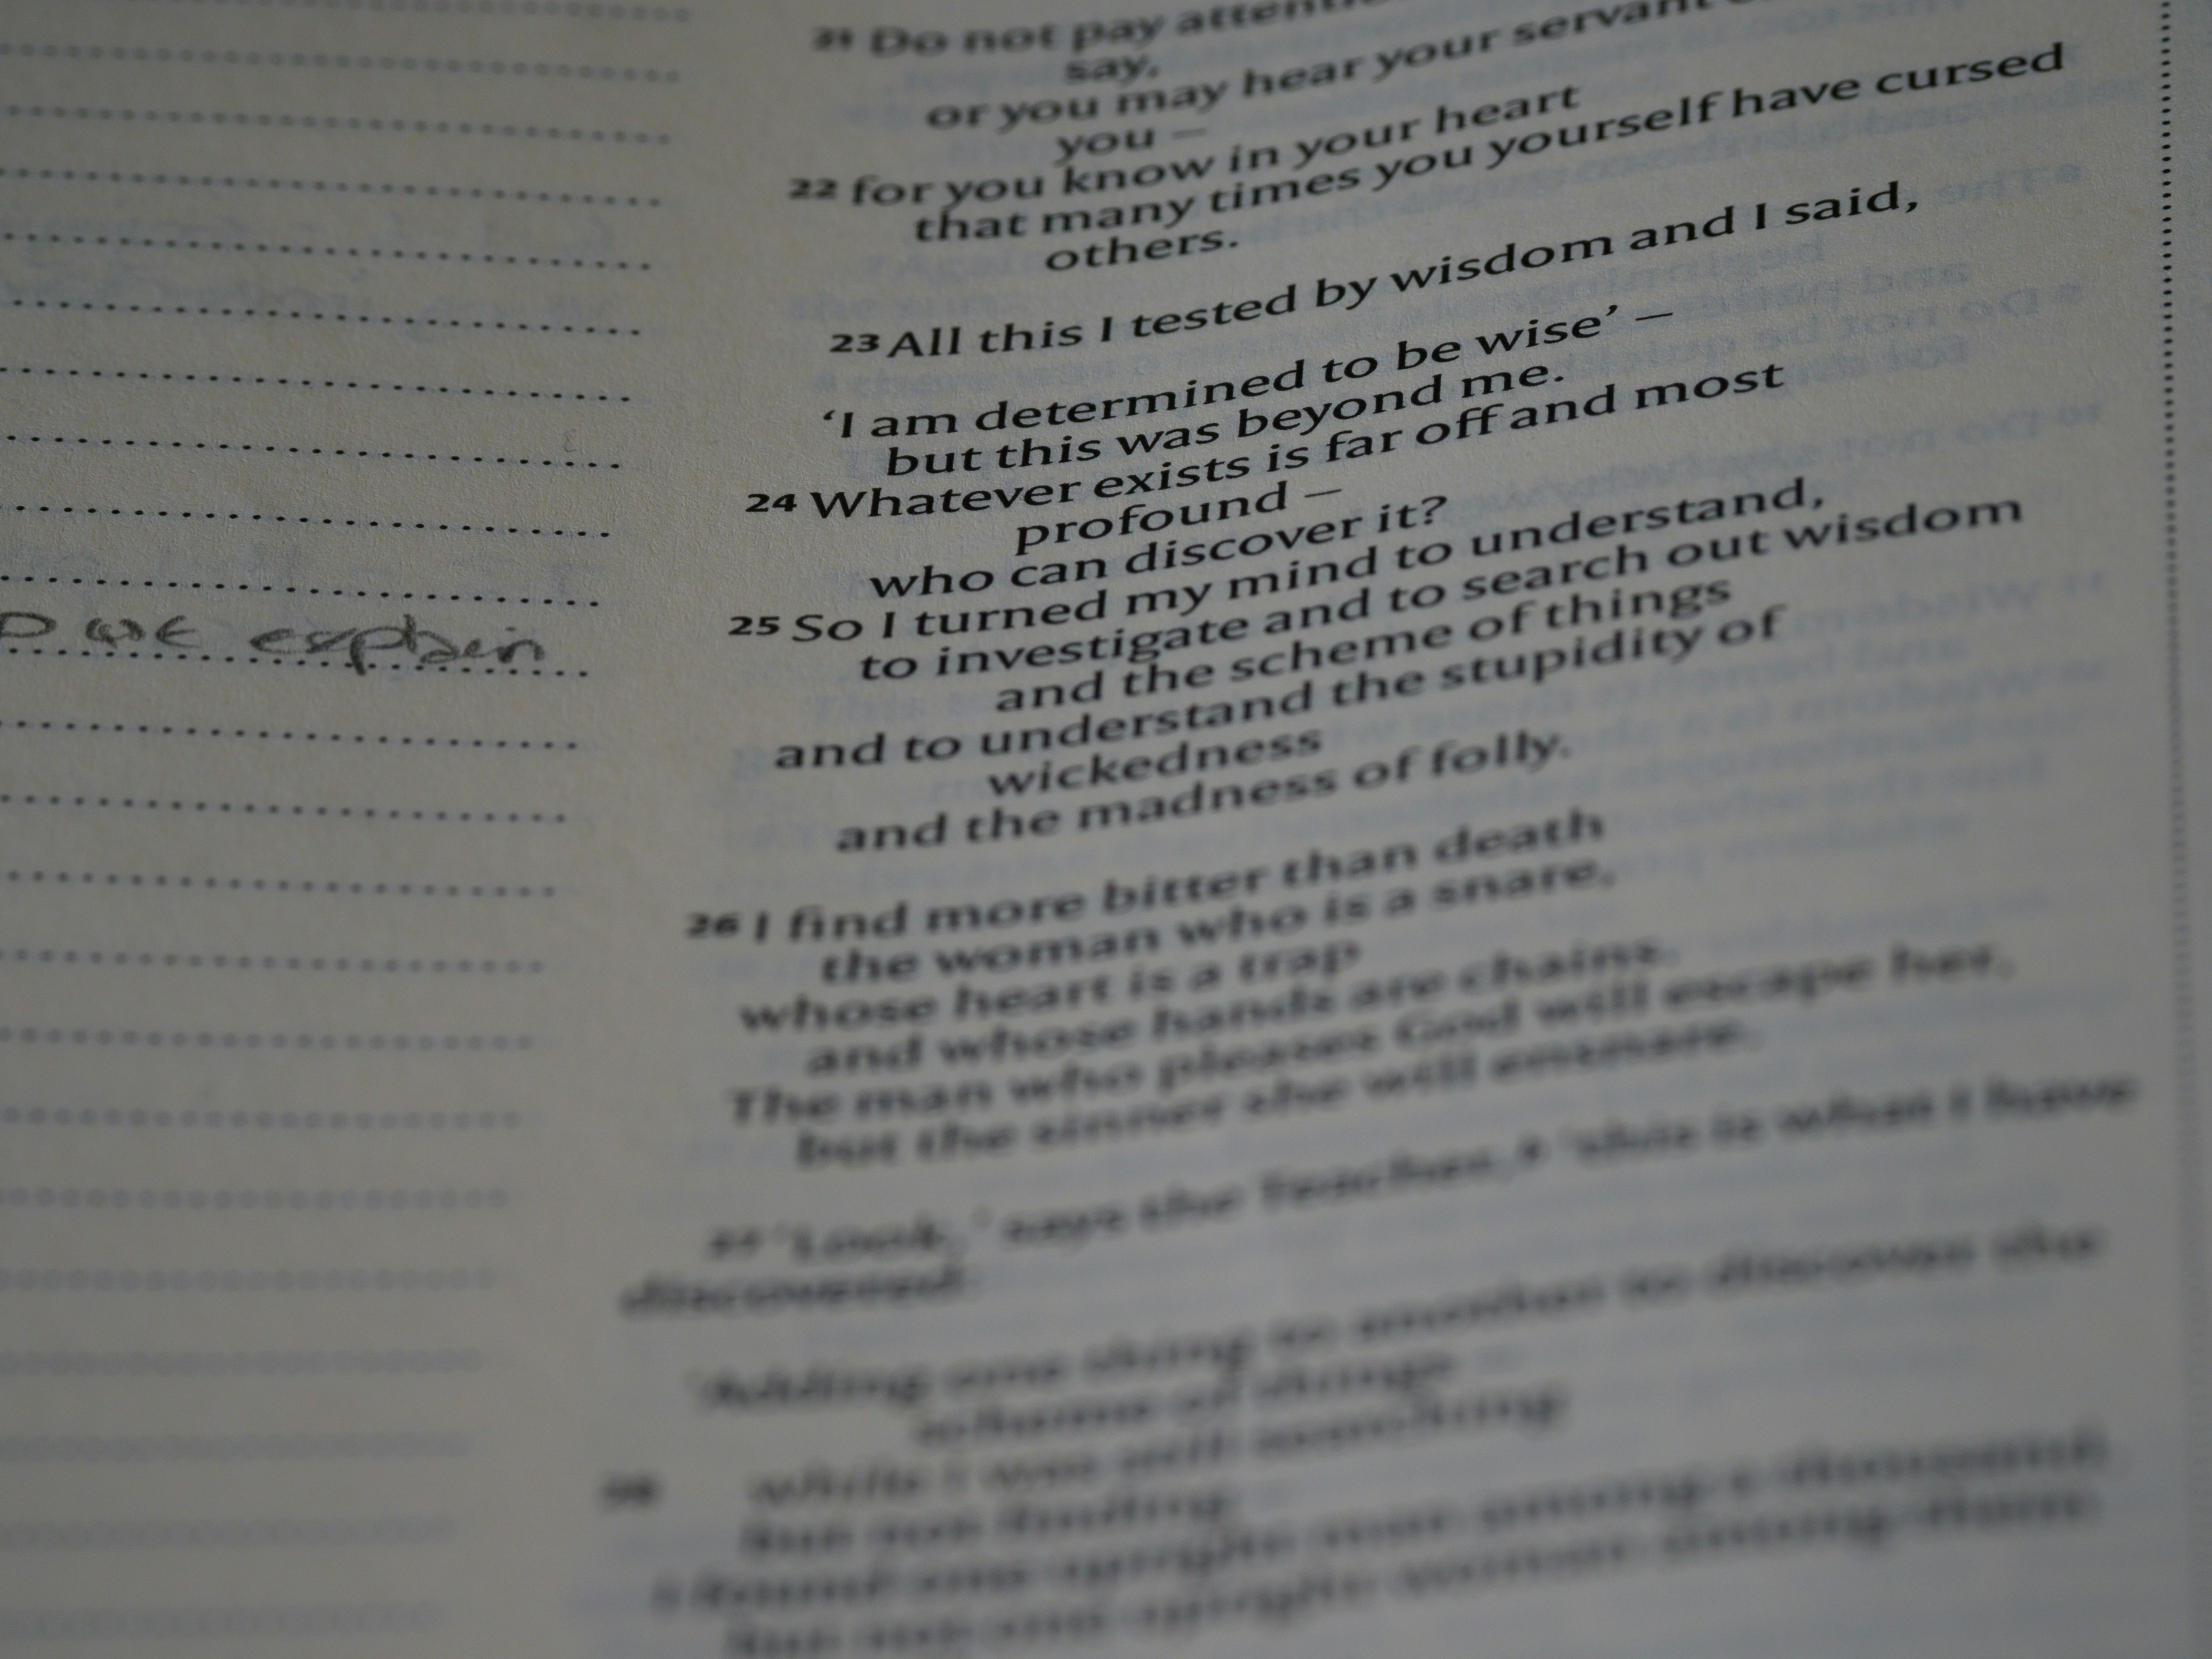 21 Do not pay
say,
or you may hear your servant
you –
22 for you know in your heart
that many times you yourself have cursed
others.
23 All this I tested by wisdom and I said,
‘I am determined to be wise’ –
but this was beyond me.
24 Whatever exists is far off and most
profound –
who can discover it?
25 So I turned my mind to understand,
to investigate and to search out wisdom
and the scheme of things
and to understand the stupidity of
wickedness
and the madness of folly.
26 I find more bitter than death
the woman who is a snare,
whose heart is a trap
and whose hands are chains.
The man who pleases God will escape her,
but the sinner she will ensnare.
27 ‘Look,’ says the Teacher, ‘this is what I have
discovered:
‘Adding one thing to another to discover the
scheme of things –
while I was still searching
but not finding –
I found one upright man among a thousand,
but not one upright woman among them.
explain